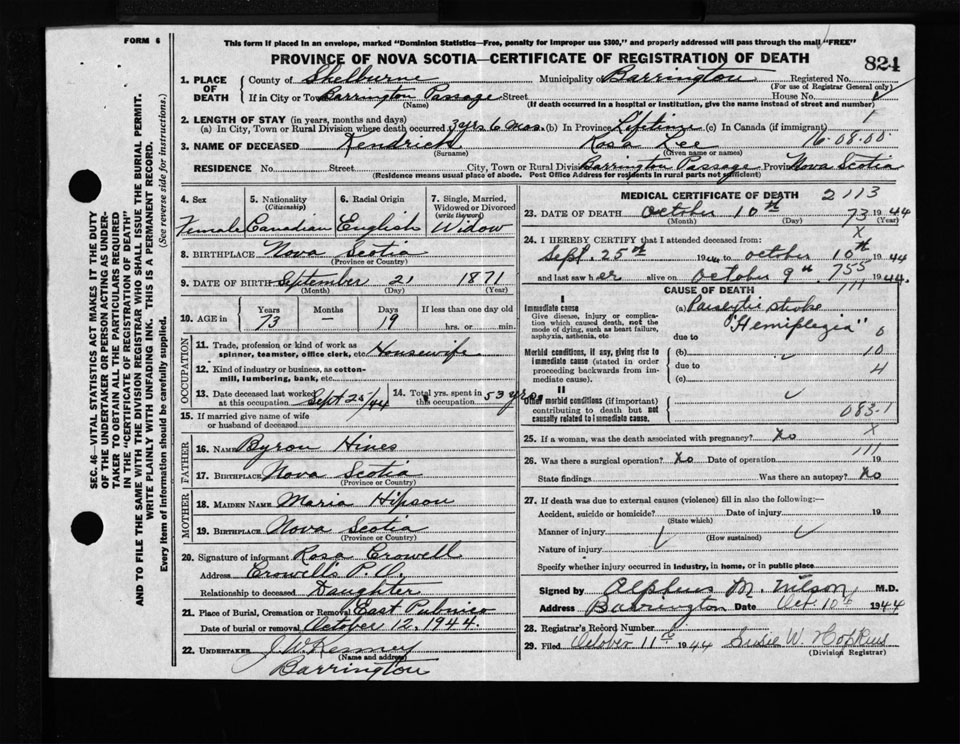 FORM 6
This form if placed in an envelope, marked "Dominion Statistics—Free, penalty for improper use $300," and properly addressed will pass through the mail "FREE"
PROVINCE OF NOVA SCOTIA—CERTIFICATE OF REGISTRATION OF DEATH
824
1. PLACE OF DEATH
County of Shelburne Municipality of Barrington Registered No.
(For use of Registrar General only)
If in City or Town Barrington Passage Street House No.
(Name) (If death occurred in a hospital or institution, give the name instead of street and number)
2. LENGTH OF STAY (in years, months and days)
(a) In City, Town or Rural Division where death occurred 3 yrs 6 mos. (b) In Province Lifetime (c) In Canada (if immigrant)
16-08-00
3. NAME OF DECEASED Kendrick Rosa Lee
(Surname) (Given name or names)
RESIDENCE No. Street City, Town or Rural Division Barrington Passage Province Nova Scotia
(Residence means usual place of abode. Post Office Address for residents in rural parts not sufficient)
4. Sex 5. Nationality (Citizenship) 6. Racial Origin 7. Single, Married, Widowed or Divorced (write the word)
Female Canadian English Widow
8. BIRTHPLACE Nova Scotia
(Province or Country)
9. DATE OF BIRTH September 21 1871
(Month) (Day) (Year)
10. AGE in Years Months Days If less than one day old
73 — 19 hrs. or min.
OCCUPATION
11. Trade, profession or kind of work as spinner, teamster, office clerk, etc. Housewife
12. Kind of industry or business, as cotton-mill, lumbering, bank, etc.
13. Date deceased last worked at this occupation Sept 25/44 14. Total yrs. spent in this occupation 53 yrs
15. If married give name of wife or husband of deceased
FATHER
16. NAME Byron Hines
17. BIRTHPLACE Nova Scotia
(Province or Country)
MOTHER
18. MAIDEN NAME Maria Hipson
19. BIRTHPLACE Nova Scotia
(Province or Country)
20. Signature of informant Rosa Crowell
Address Crowell's P.O.
Relationship to deceased Daughter
21. Place of Burial, Cremation or Removal East Pubnico
Date of burial or removal October 12, 1944.
22. UNDERTAKER J W Kenney
(Name and address)
Barrington
MEDICAL CERTIFICATE OF DEATH 2113
23. DATE OF DEATH October 10th 1944
(Month) (Day)
73
X
24. I HEREBY CERTIFY that I attended deceased from:
Sept. 25th 1944 to October 10th 1944
and last saw her alive on October 9th 1944
755
111
CAUSE OF DEATH
I
Immediate cause
Give disease, injury or complication which caused death, not the mode of dying, such as heart failure, asphyxia, asthenia, etc
(a) Paralytic stroke
"Hemiplegia"
0
due to
Morbid conditions, if any, giving rise to immediate cause (stated in order proceeding backwards from immediate cause).
(b) 10
due to 4
(c)
II
Other morbid conditions (if important) contributing to death but not causally related to immediate cause.
083-1
X
25. If a woman, was the death associated with pregnancy? No
111
26. Was there a surgical operation? No Date of operation 19
State findings Was there an autopsy? No
27. If death was due to external causes (violence) fill in also the following:—
Accident, suicide or homicide? Date of injury 19
(State which)
Manner of injury
(How sustained)
Nature of injury
Specify whether injury occurred in industry, in home, or in public place
Signed by Alpheus M. Wilson M.D.
Address Barrington Date Oct 10th 1944
28. Registrar's Record Number
29. Filed October 11th 1944 Susie W. Hopkins
(Division Registrar)
SEC. 46—VITAL STATISTICS ACT MAKES IT THE DUTY
OF THE UNDERTAKER OR PERSON ACTING AS UNDER-
TAKER TO OBTAIN ALL THE PARTICULARS REQUIRED
IN THE "CERTIFICATE OF REGISTRATION OF DEATH"
AND TO FILE THE SAME WITH THE DIVISION REGISTRAR WHO SHALL ISSUE THE BURIAL PERMIT.
WRITE PLAINLY WITH UNFADING INK. THIS IS A PERMANENT RECORD.
Every item of information should be carefully supplied. (See reverse side for instructions.)